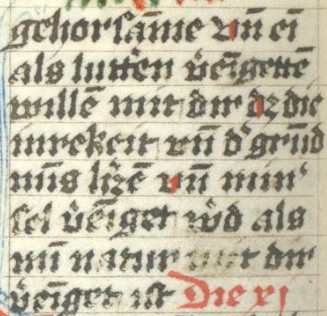 gehorsāme vn̄ ei
als luttē̄n v̄eīgettē
willē mit dir dz die
inrekeit vn̄ d᾽ grūd
mīs h᾽zē vn̄ min᾽
sel v̄eīget w᾽d als
mī natur mit dir
v̄eīget ist Die xj